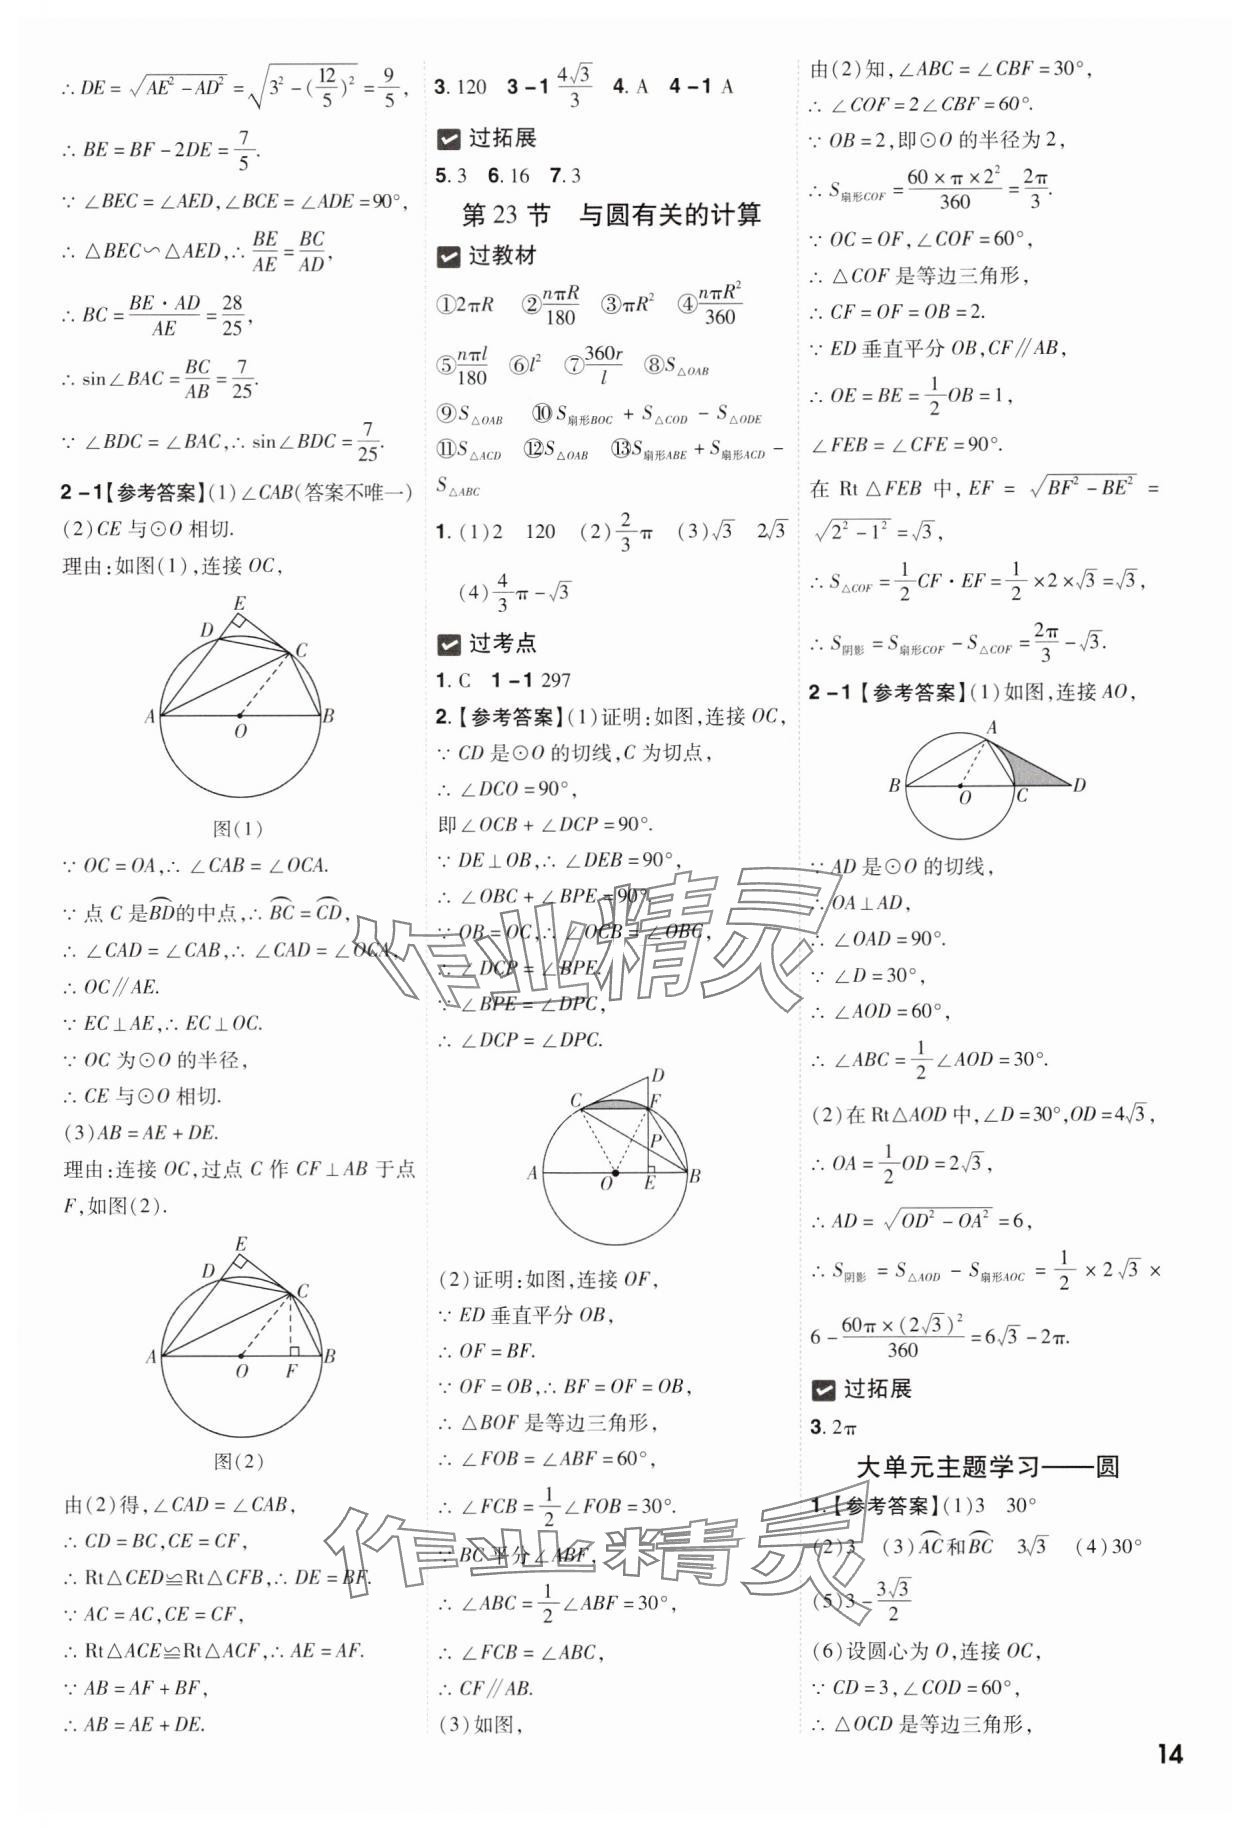 ∴ DE = √(AE² - AD²) = √(3² - (12/5)²) = 9/5,
∴ BE = BF - 2DE = 7/5.
∵ ∠BEC = ∠AED, ∠BCE = ∠ADE = 90°,
∴ △BEC∽△AED, ∴ BE/AE = BC/AD,
∴ BC = BE·AD/AE = 28/25,
∴ sin∠BAC = BC/AB = 7/25.
∵ ∠BDC = ∠BAC, ∴ sin∠BDC = 7/25.
2-1【参考答案】(1)∠CAB(答案不唯一)
(2)CE 与⊙O 相切.
理由:如图(1),连接 OC,
E
D
C
A
O
B
图(1)
∵ OC = OA, ∴ ∠CAB = ∠OCA.
∵ 点 C 是⌒BD的中点, ∴ ⌒BC = ⌒CD,
∴ ∠CAD = ∠CAB, ∴ ∠CAD = ∠OCA,
∴ OC∥AE.
∵ EC⊥AE, ∴ EC⊥OC.
∵ OC 为⊙O 的半径,
∴ CE 与⊙O 相切.
(3)AB = AE + DE.
理由:连接 OC,过点 C 作 CF⊥AB 于点
F,如图(2).
E
D
C
A
O
F
B
图(2)
由(2)得, ∠CAD = ∠CAB,
∴ CD = BC, CE = CF,
∴ Rt△CED≌Rt△CFB, ∴ DE = BF.
∵ AC = AC, CE = CF,
∴ Rt△ACE≌Rt△ACF, ∴ AE = AF.
∵ AB = AF + BF,
∴ AB = AE + DE.
3. 120 3-1 4√3/3 4. A 4-1 A
过拓展
5. 3 6. 16 7. 3
第 23 节 与圆有关的计算
过教材
①2πR ②nπR/180 ③πR² ④nπR²/360
⑤nπl/180 ⑥l² ⑦360r/l ⑧S△OAB
⑨S△OAB ⑩S扇形BOC + S△COD - S△ODE
⑪S△ACD ⑫S△OAB ⑬S扇形ABE + S扇形ACD -
S△ABC
1. (1)2 120 (2)2/3π (3)√3 2√3
(4)4/3π - √3
过考点
1. C 1-1 297
2.【参考答案】(1)证明:如图,连接 OC,
∵ CD 是⊙O 的切线,C 为切点,
∴ ∠DCO = 90°,
即∠OCB + ∠DCP = 90°.
∵ DE⊥OB, ∴ ∠DEB = 90°,
∴ ∠OBC + ∠BPE = 90°.
∵ OB = OC, ∴ ∠OCB = ∠OBC,
∴ ∠DCP = ∠BPE.
∵ ∠BPE = ∠DPC,
∴ ∠DCP = ∠DPC.
D
C
F
P
A
O
E
B
(2)证明:如图,连接 OF,
∵ ED 垂直平分 OB,
∴ OF = BF.
∵ OF = OB, ∴ BF = OF = OB,
∴ △BOF 是等边三角形,
∴ ∠FOB = ∠ABF = 60°,
∴ ∠FCB = 1/2∠FOB = 30°.
∵ BC 平分∠ABF,
∴ ∠ABC = 1/2∠ABF = 30°,
∴ ∠FCB = ∠ABC,
∴ CF∥AB.
(3)如图,
由(2)知, ∠ABC = ∠CBF = 30°,
∴ ∠COF = 2∠CBF = 60°.
∵ OB = 2,即⊙O 的半径为 2,
∴ S扇形COF = 60×π×2²/360 = 2π/3.
∵ OC = OF, ∠COF = 60°,
∴ △COF 是等边三角形,
∴ CF = OF = OB = 2.
∵ ED 垂直平分 OB, CF∥AB,
∴ OE = BE = 1/2OB = 1,
∠FEB = ∠CFE = 90°.
在 Rt△FEB 中, EF = √(BF² - BE²) =
√(2² - 1²) = √3,
∴ S△COF = 1/2CF·EF = 1/2×2×√3 = √3,
∴ S阴影 = S扇形COF - S△COF = 2π/3 - √3.
2-1【参考答案】(1)如图,连接 AO,
A
B
O
C
D
∵ AD 是⊙O 的切线,
∴ OA⊥AD,
∴ ∠OAD = 90°.
∵ ∠D = 30°,
∴ ∠AOD = 60°,
∴ ∠ABC = 1/2∠AOD = 30°.
(2)在 Rt△AOD 中, ∠D = 30°, OD = 4√3,
∴ OA = 1/2OD = 2√3,
∴ AD = √(OD² - OA²) = 6,
∴ S阴影 = S△AOD - S扇形AOC = 1/2 × 2√3 ×
6 - 60π×(2√3)²/360 = 6√3 - 2π.
过拓展
3. 2π
大单元主题学习——圆
1.【参考答案】(1)3 30°
(2)3 (3)⌒AC和⌒BC 3√3 (4)30°
(5)3 - 3√3/2
(6)设圆心为 O,连接 OC,
∵ CD = 3, ∠COD = 60°,
∴ △OCD 是等边三角形,
14
作业精灵
作业精灵